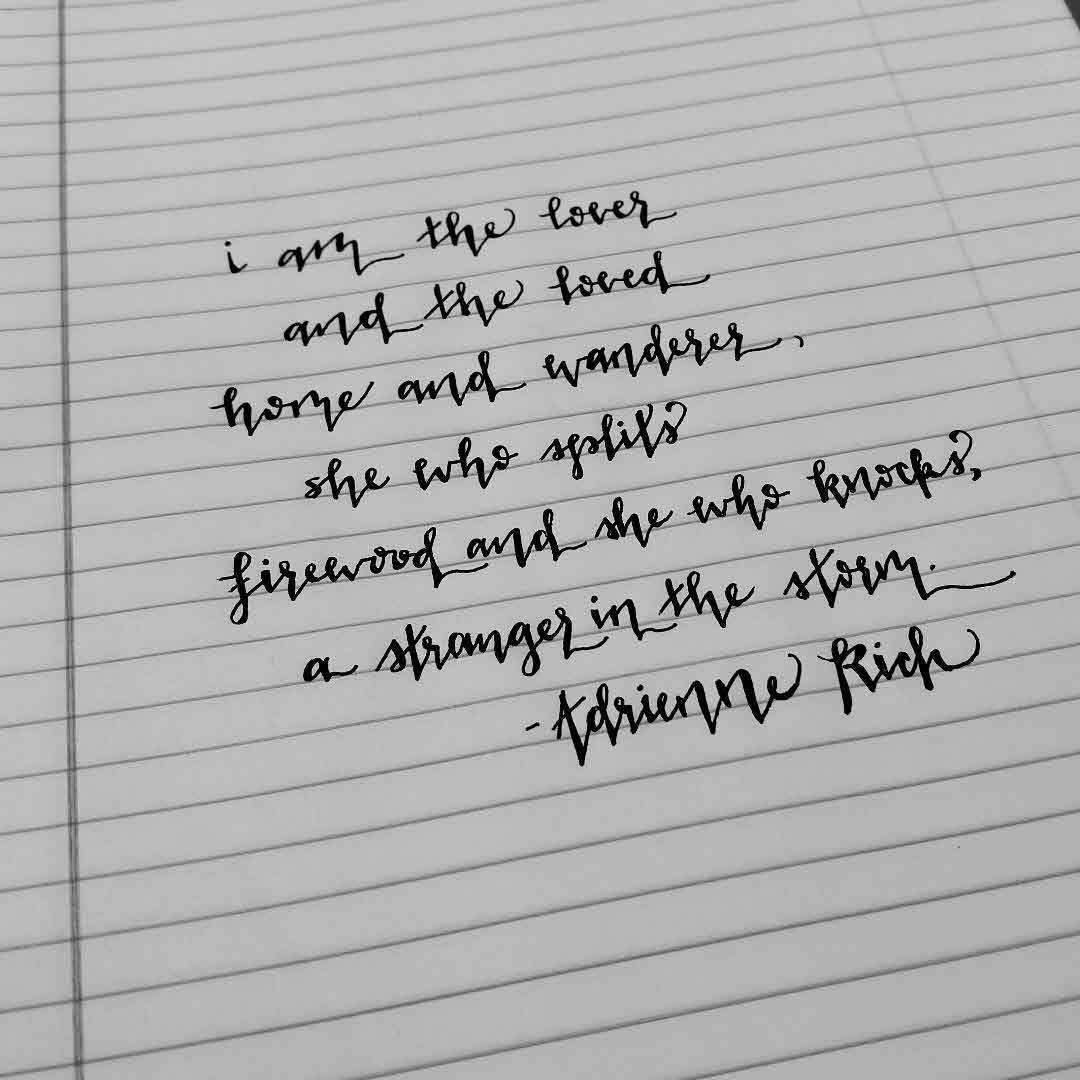 i am the lover
and the loved
home and wanderer,
she who splits
firewood and she who knocks,
a stranger in the storm.
-Adrienne Rich